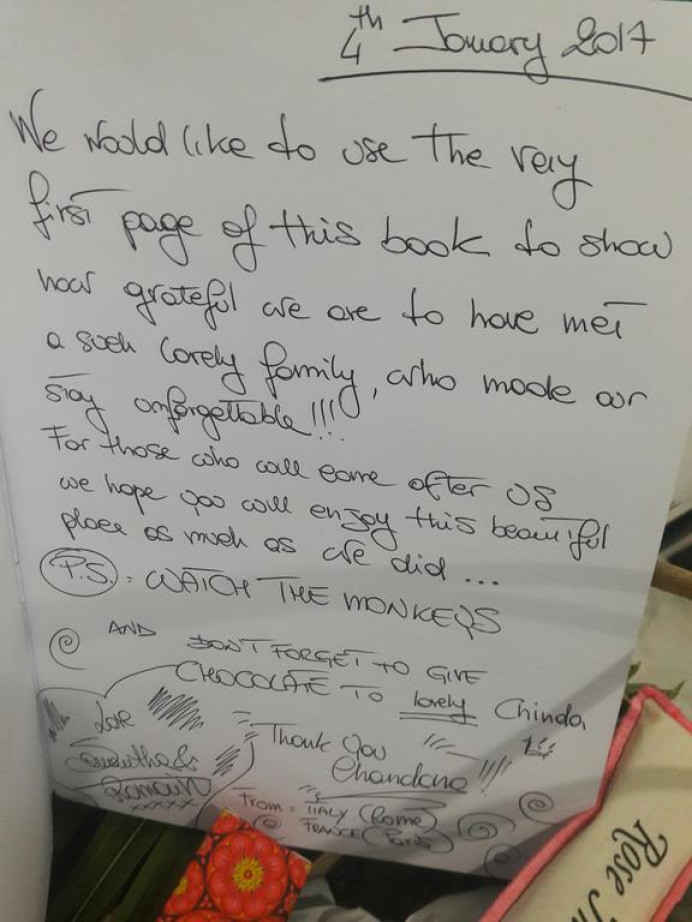 4th January 2017
We would like to use the very
first page of this book to show
how grateful we are to have met
a such lovely family, who made our
stay unforgettable!!!
For those who will come after us
we hope you will enjoy this beautiful
place as much as we did ...
P.S.: WATCH THE MONKEYS
AND DON'T FORGET TO GIVE
CHOCOLATE TO lovely Chinda
Love
Romain
xxxxx
Thank you
Chandana!!!!
From: ITALY (Rome)
FRANCE (Paris)
Rose